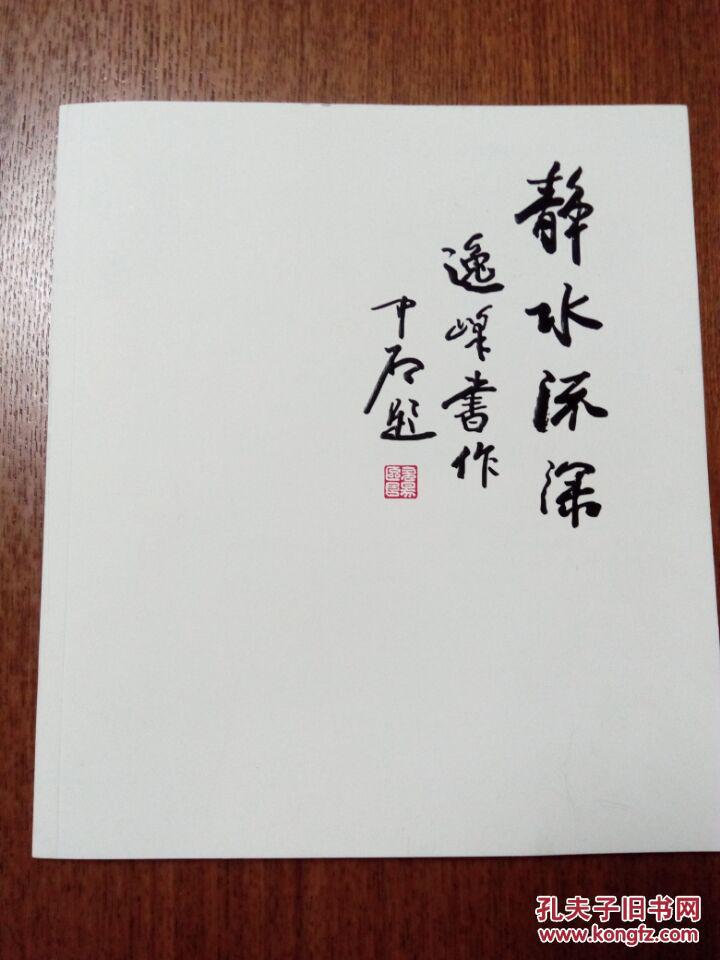 静水流深
逸峰书作
中石题
孔夫子旧书网
www.kongfz.com